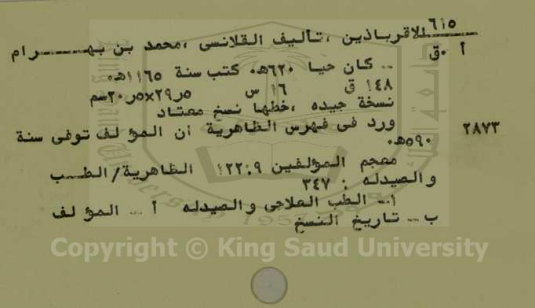 ٦١٥
أ ٠ق
الاقرباذين ،تأليف القلانسى ،محمد بن بهــــرام
ــ كان حيا ٦٢٠هـ٠ كتب سنة ١١٦٥هـ٠
١٤٨ ق ١٦ س ٥ر٢٩×٥ر٢٠سم
نسخة جيده ،خطها نسخ معتاد
ورد فى فهرس الظاهرية أن المؤلف توفى سنة
٢٨٧٣
٥٩٠هـ٠
معجم المؤلفين ١٢٢:٩ الظاهرية/الطــب
والصيدله : ٣٤٧
١ــ الطب العلاجى والصيدله أ ــ المؤلف
ب ــ تاريخ النسخ
Copyright © King Saud University